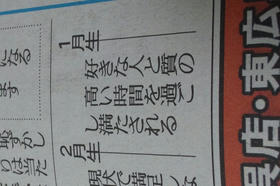 になる
ます
恥ずかし
りは当た
1月生
好きな人と質の
高い時間を過ご
し満たされる
2月生
現状で満足しな
呉店・東広